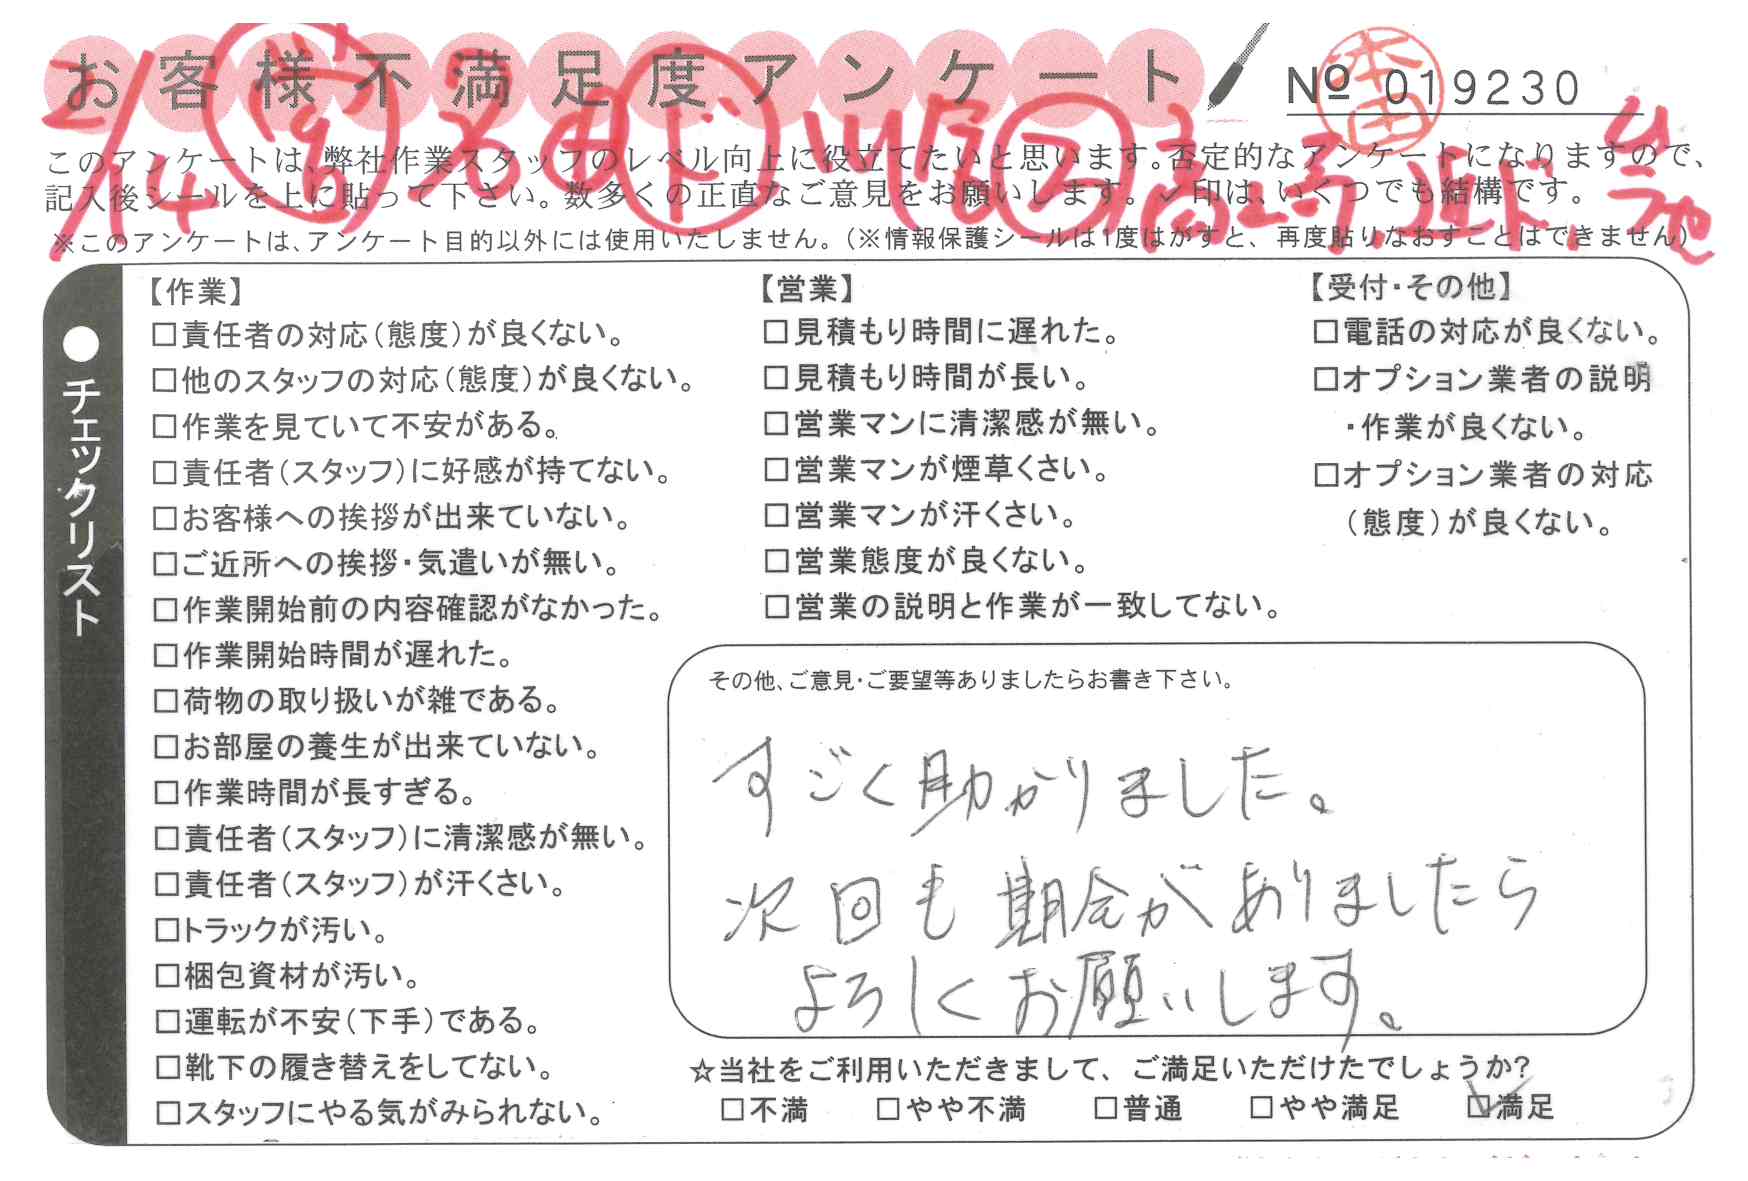 お客様不満足度アンケート
No 019230
本田
2/14
このアンケートは、弊社作業スタッフのレベル向上に役立てたいと思います。否定的なアンケートになりますので、
記入後シールを上に貼って下さい。数多くの正直なご意見をお願いします。✓印は、いくつでも結構です。
※このアンケートは、アンケート目的以外には使用いたしません。（※情報保護シールは1度はがすと、再度貼りなおすことはできません）
●チェックリスト
【作業】
□責任者の対応（態度）が良くない。
□他のスタッフの対応（態度）が良くない。
□作業を見ていて不安がある。
□責任者（スタッフ）に好感が持てない。
□お客様への挨拶が出来ていない。
□ご近所への挨拶・気遣いが無い。
□作業開始前の内容確認がなかった。
□作業開始時間が遅れた。
□荷物の取り扱いが雑である。
□お部屋の養生が出来ていない。
□作業時間が長すぎる。
□責任者（スタッフ）に清潔感が無い。
□責任者（スタッフ）が汗くさい。
□トラックが汚い。
□梱包資材が汚い。
□運転が不安（下手）である。
□靴下の履き替えをしてない。
□スタッフにやる気がみられない。
【営業】
□見積もり時間に遅れた。
□見積もり時間が長い。
□営業マンに清潔感が無い。
□営業マンが煙草くさい。
□営業マンが汗くさい。
□営業態度が良くない。
□営業の説明と作業が一致してない。
【受付・その他】
□電話の対応が良くない。
□オプション業者の説明
・作業が良くない。
□オプション業者の対応
（態度）が良くない。
その他、ご意見・ご要望等ありましたらお書き下さい。
すごく助かりました。
次回も期会がありましたら
よろしくお願いします。
☆当社をご利用いただきまして、ご満足いただけたでしょうか?
□不満 □やや不満 □普通 □やや満足 ☑満足